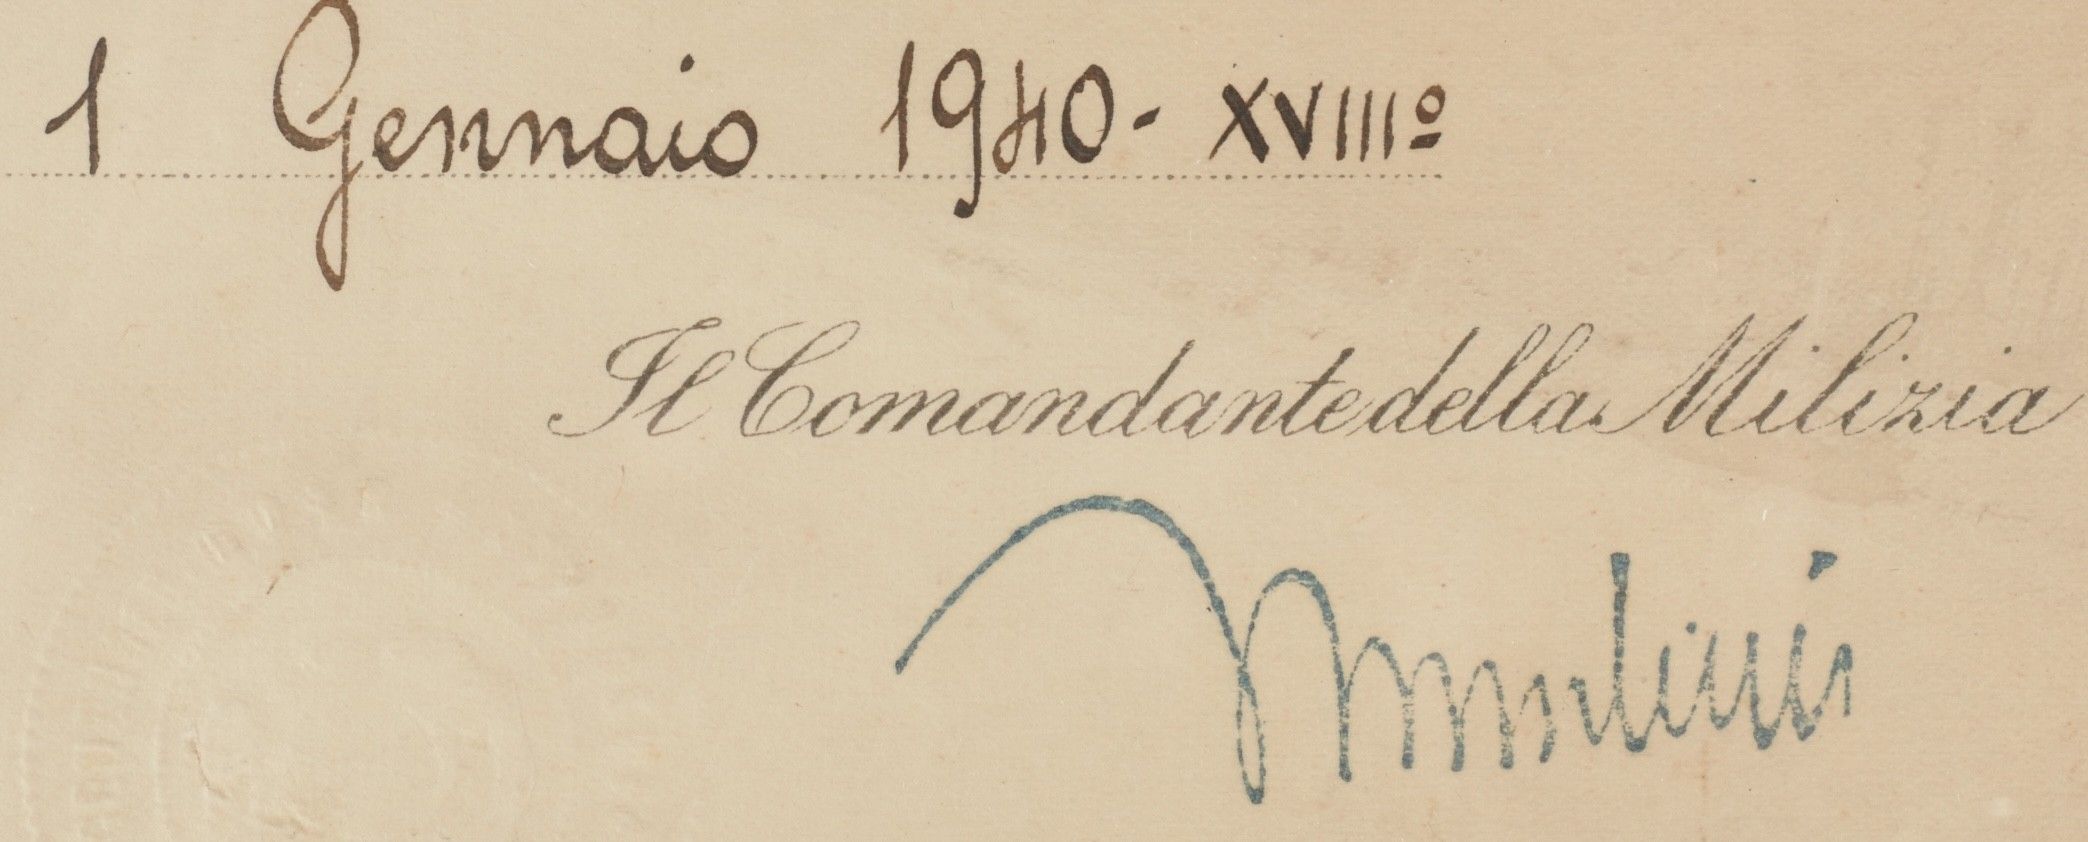 1 Gennaio 1940 - XVIIIº
Il Comandante della Milizia
Mussolini